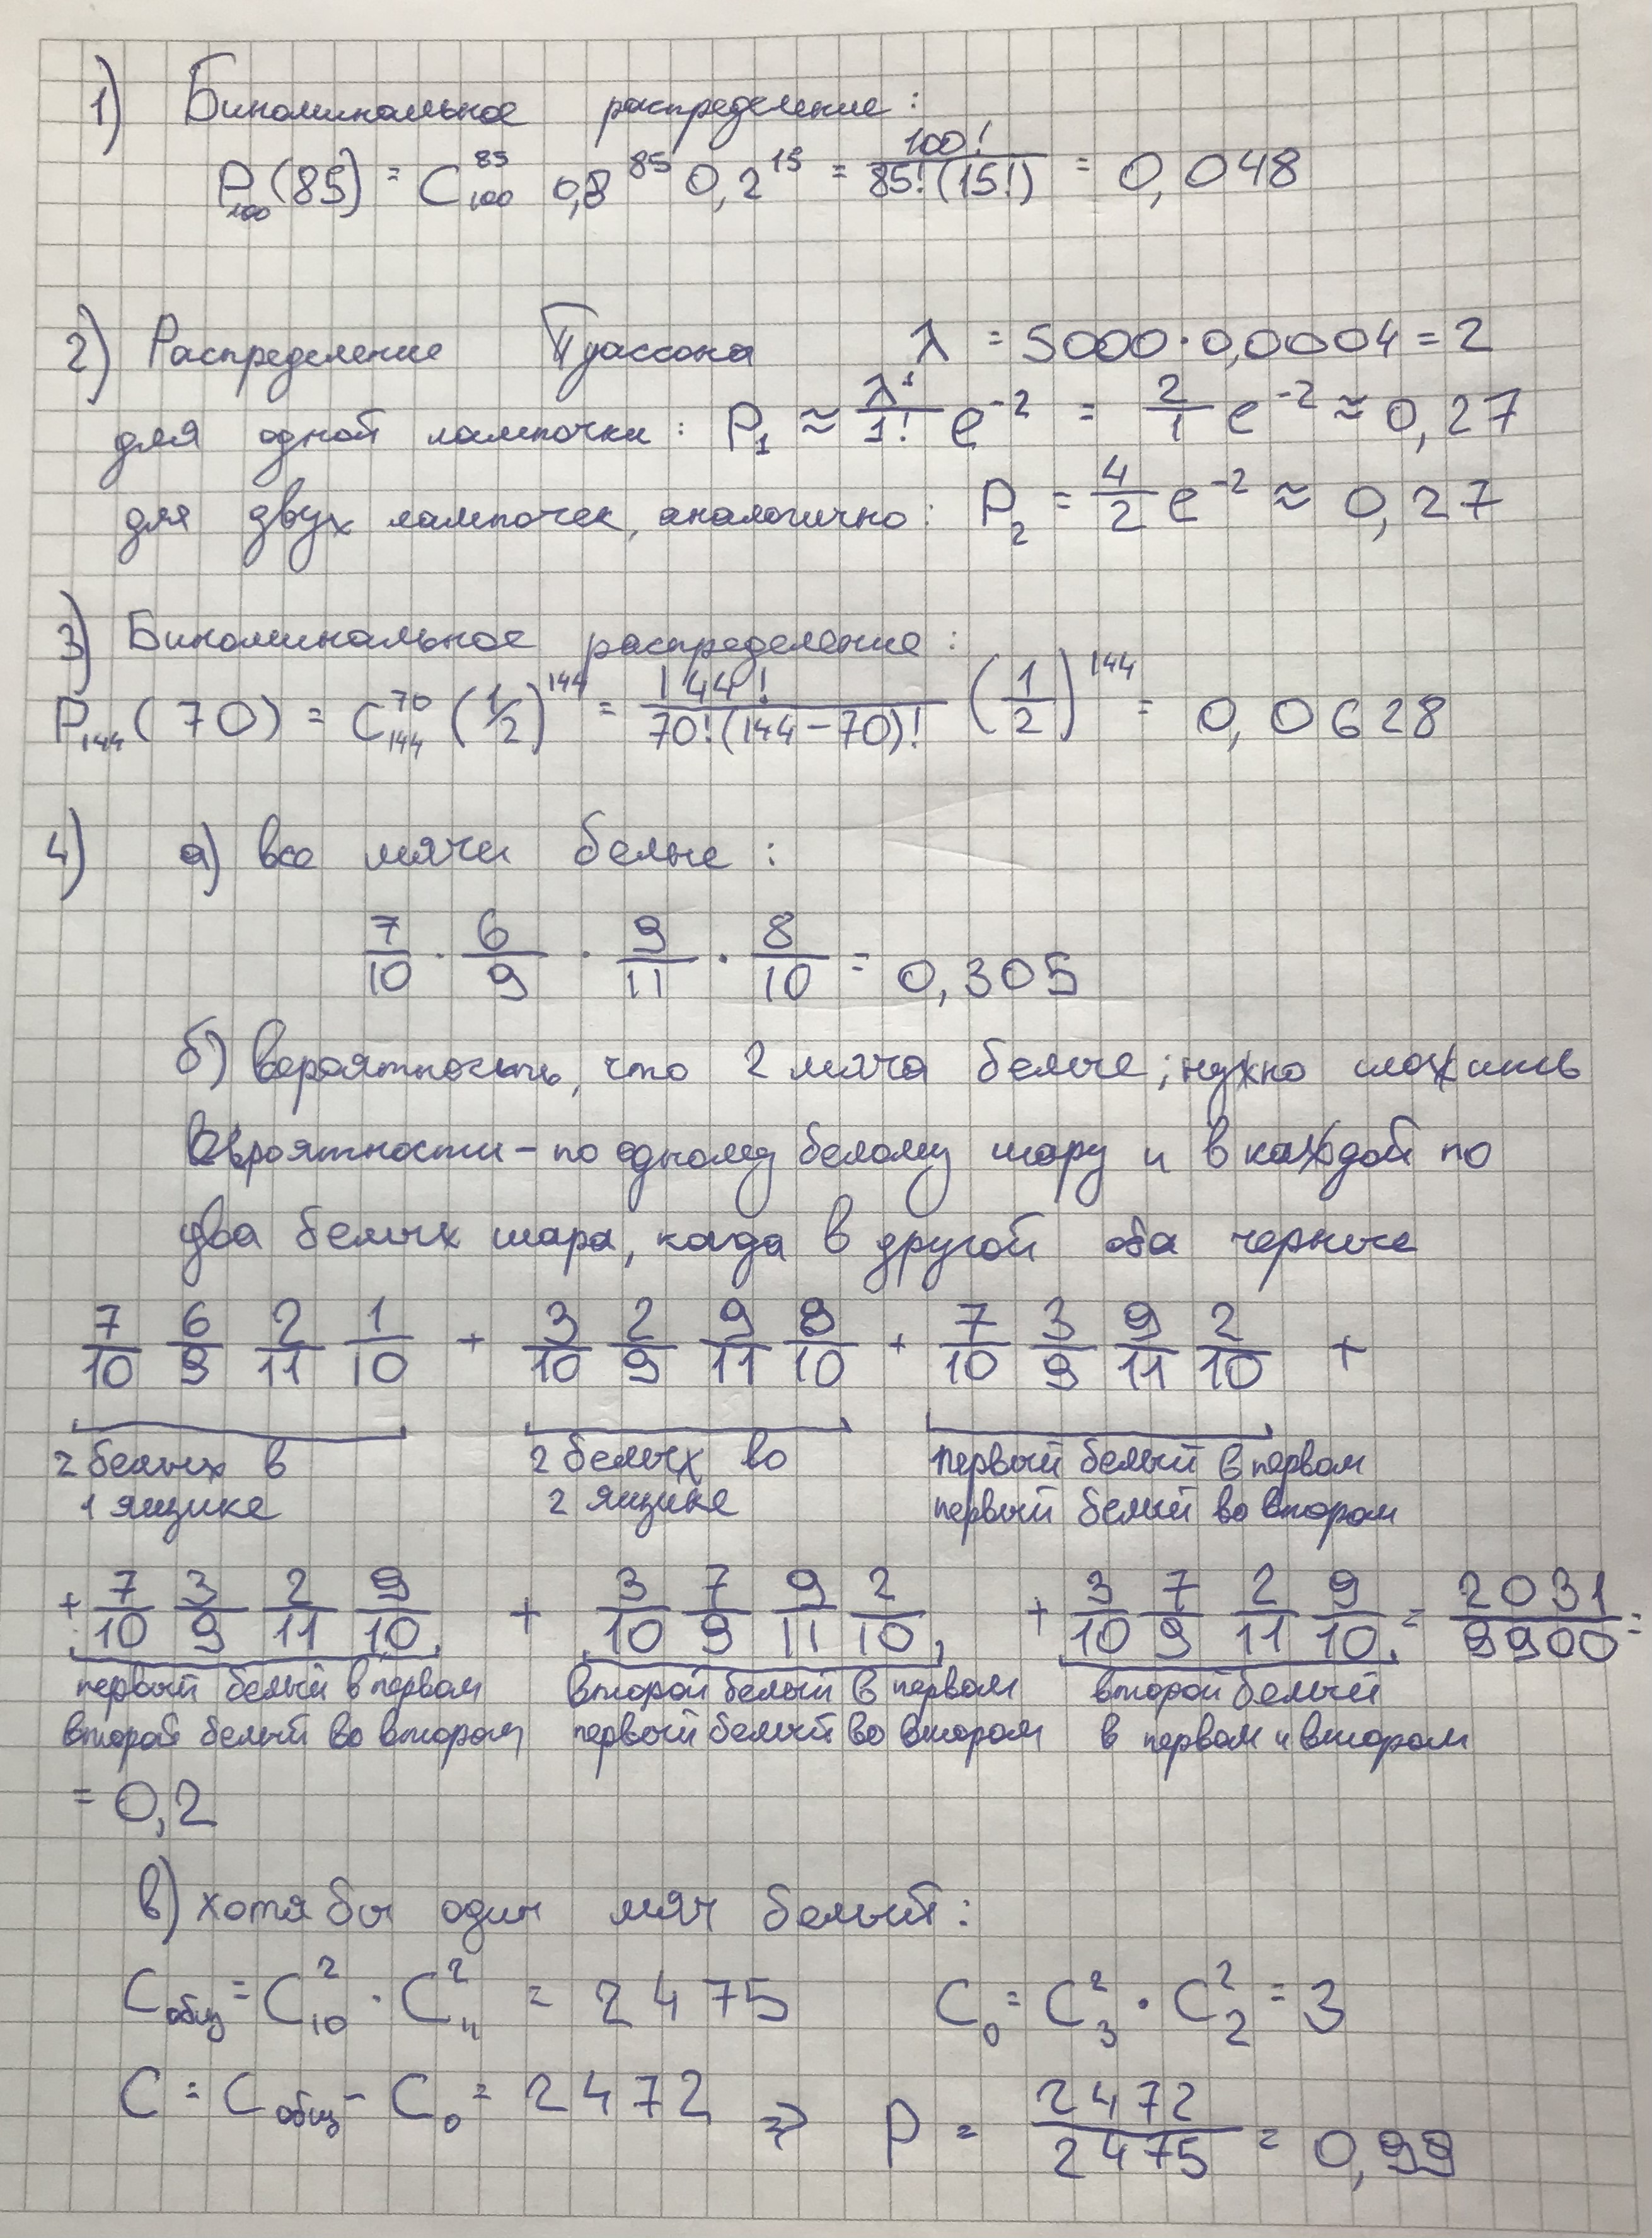 1) Биноминальное распределение:
P₁₀₀(85) = C₁₀₀⁸⁵ 0,8⁸⁵ 0,2¹⁵ = 100!/85!(15!) = 0,048
2) Распределение Пуассона λ = 5000·0,0004 = 2
для одной лампочки: P₁ ≈ λ¹/1! e⁻² = 2/1 e⁻² ≈ 0,27
для двух лампочек, аналогично: P₂ = 4/2 e⁻² ≈ 0,27
3) Биноминальное распределение:
P₁₄₄(70) = C₁₄₄⁷⁰ (1/2)¹⁴⁴ = 144!/70!(144-70)! (1/2)¹⁴⁴ = 0,0628
4) а) все мячи белые:
7/10 · 6/9 · 9/11 · 8/10 = 0,305
б) вероятность, что 2 мяча белые; нужно сложить
вероятности - по одному белому шару и в каждой по
два белых шара, когда в другой оба черные
7/10 6/9 2/11 1/10 + 3/10 2/9 9/11 8/10 + 7/10 3/9 9/11 2/10 +
2 белых в 2 белых во первый белый в первом
1 ящике 2 ящике первый белый во втором
+ 7/10 3/9 2/11 9/10 + 3/10 7/9 9/11 2/10 + 3/10 7/9 2/11 9/10 = 2031/9900 =
первый белый в первом второй белый в первом второй белый
второй белый во втором первый белый во втором в первом и втором
= 0,2
в) хотя бы один мяч белый:
Cобщ = C₁₀² · C₁₁² = 2475 C₀ = C₃² · C₂² = 3
C = Cобщ - C₀ = 2472 ⇒ P = 2472/2475 = 0,99